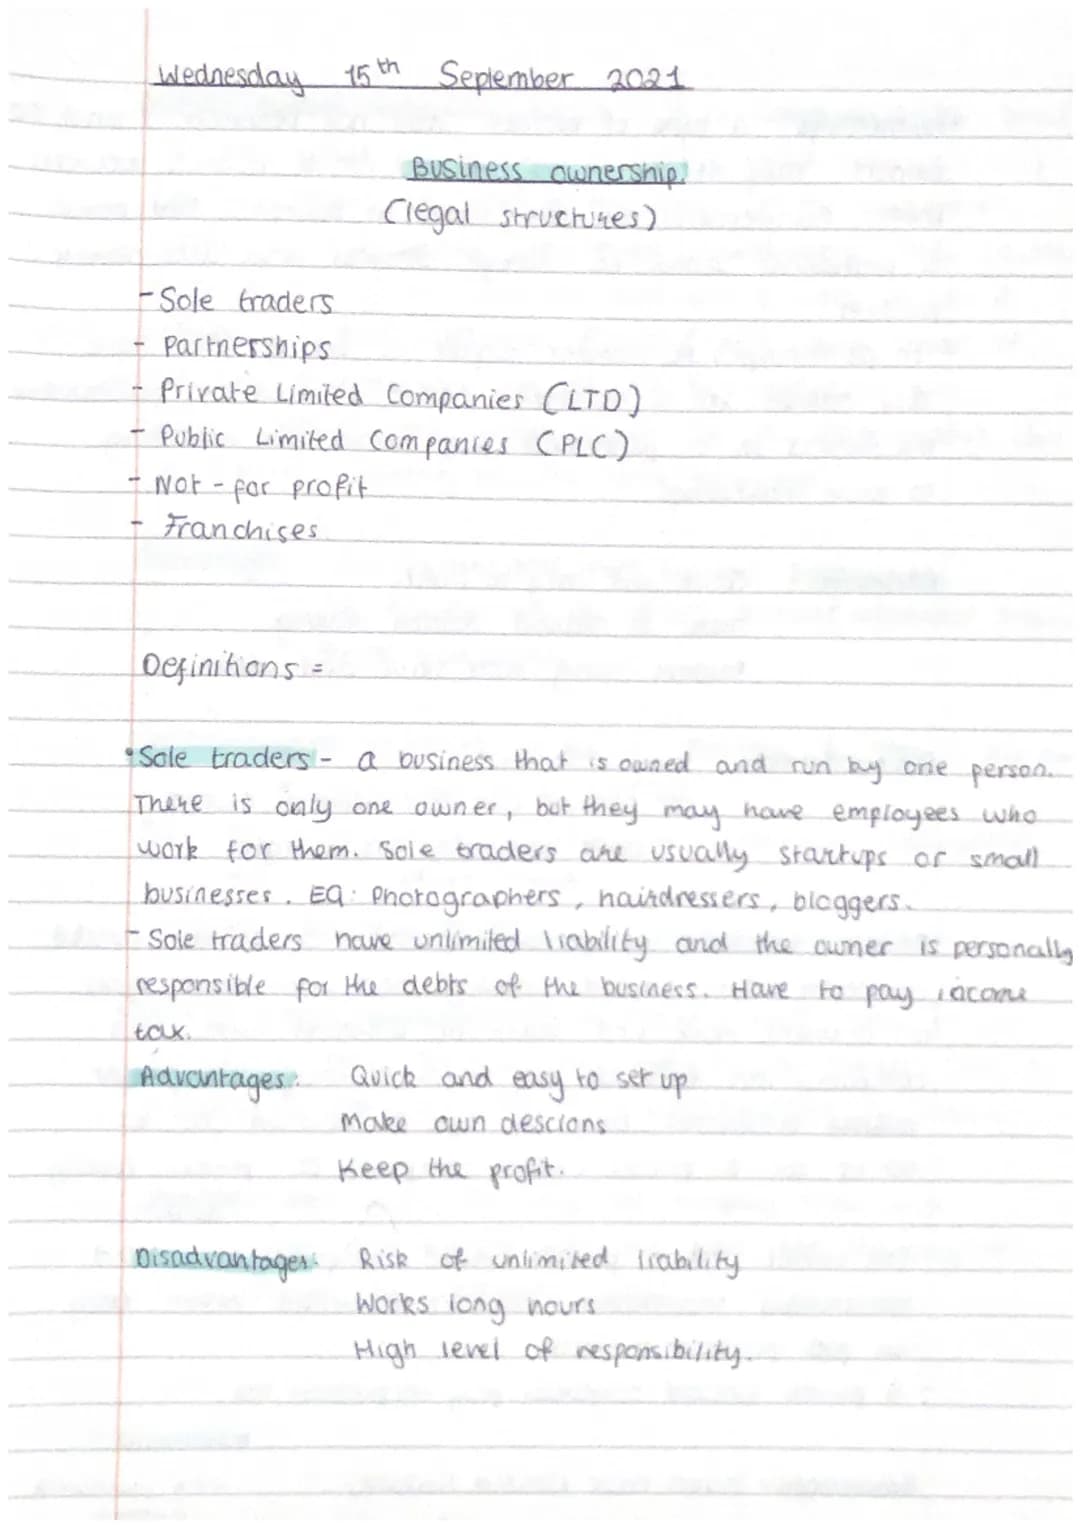 Wednesday 15th September 2021
Business ownership.
(legal structures)
- Sole traders
- Partnerships
- Private Limited Companies (LTD)
- Public Limited Companies (PLC)
- Not-for profit
- Franchises
Definitions =
• Sole traders - a business that is owned and run by one person.
There is only one owner, but they may have employees who
work for them. Sole traders are usually startups or small
businesses. EG: Photographers, hairdressers, bloggers.
- Sole traders have unlimited liability and the owner is personally
responsible for the debts of the business. Have to pay income
tax.
Advantages: Quick and easy to set up
Make own descions
Keep the profit.
Disadvantages: Risk of unlimited liability
Works long hours
High level of responsibility.